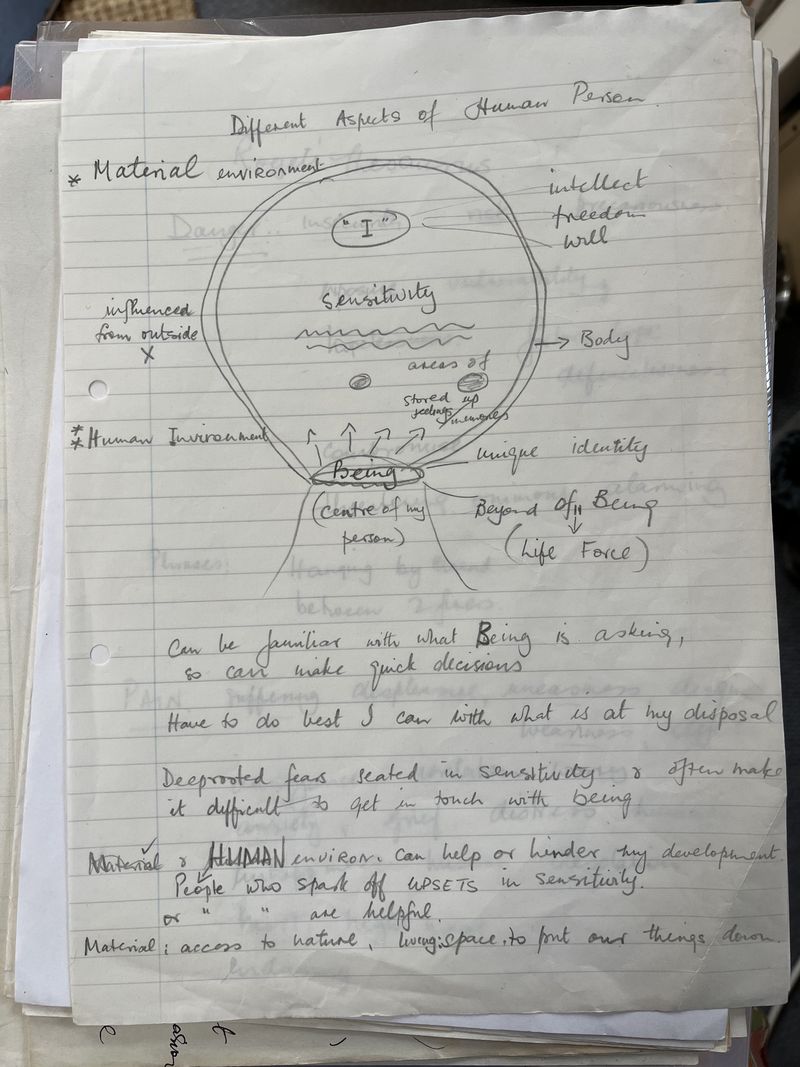 Different Aspects of Human Person.
* Material environment
"I"
intellect
freedom
will
sensitivity
influenced
from outside
X
→ Body
areas of
stored up
feelings memories
** Human Invironment
Being
unique identity
(centre of my
person)
Beyond of Being
(Life Force)
Can be familiar with what Being is asking,
so can make quick decisions
Have to do best I can with what is at my disposal
Deeprooted fears seated in sensitivity & often make
it difficult to get in touch with being
Material & HUMAN environ. can help or hinder my development.
People who spark off UPSETS in sensitivity.
or " " are helpful.
Material: access to nature, living space, to put our things down.